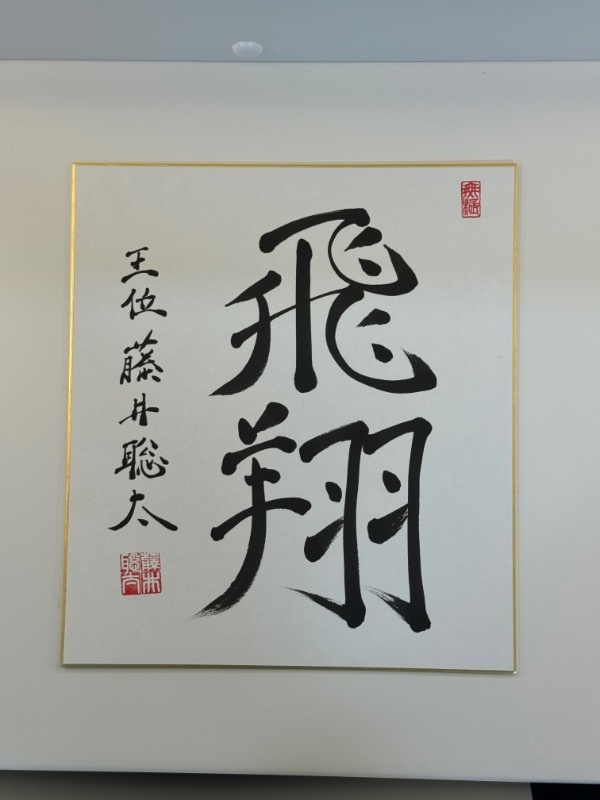 飛翔
王位 藤井聡太
藤井聡太